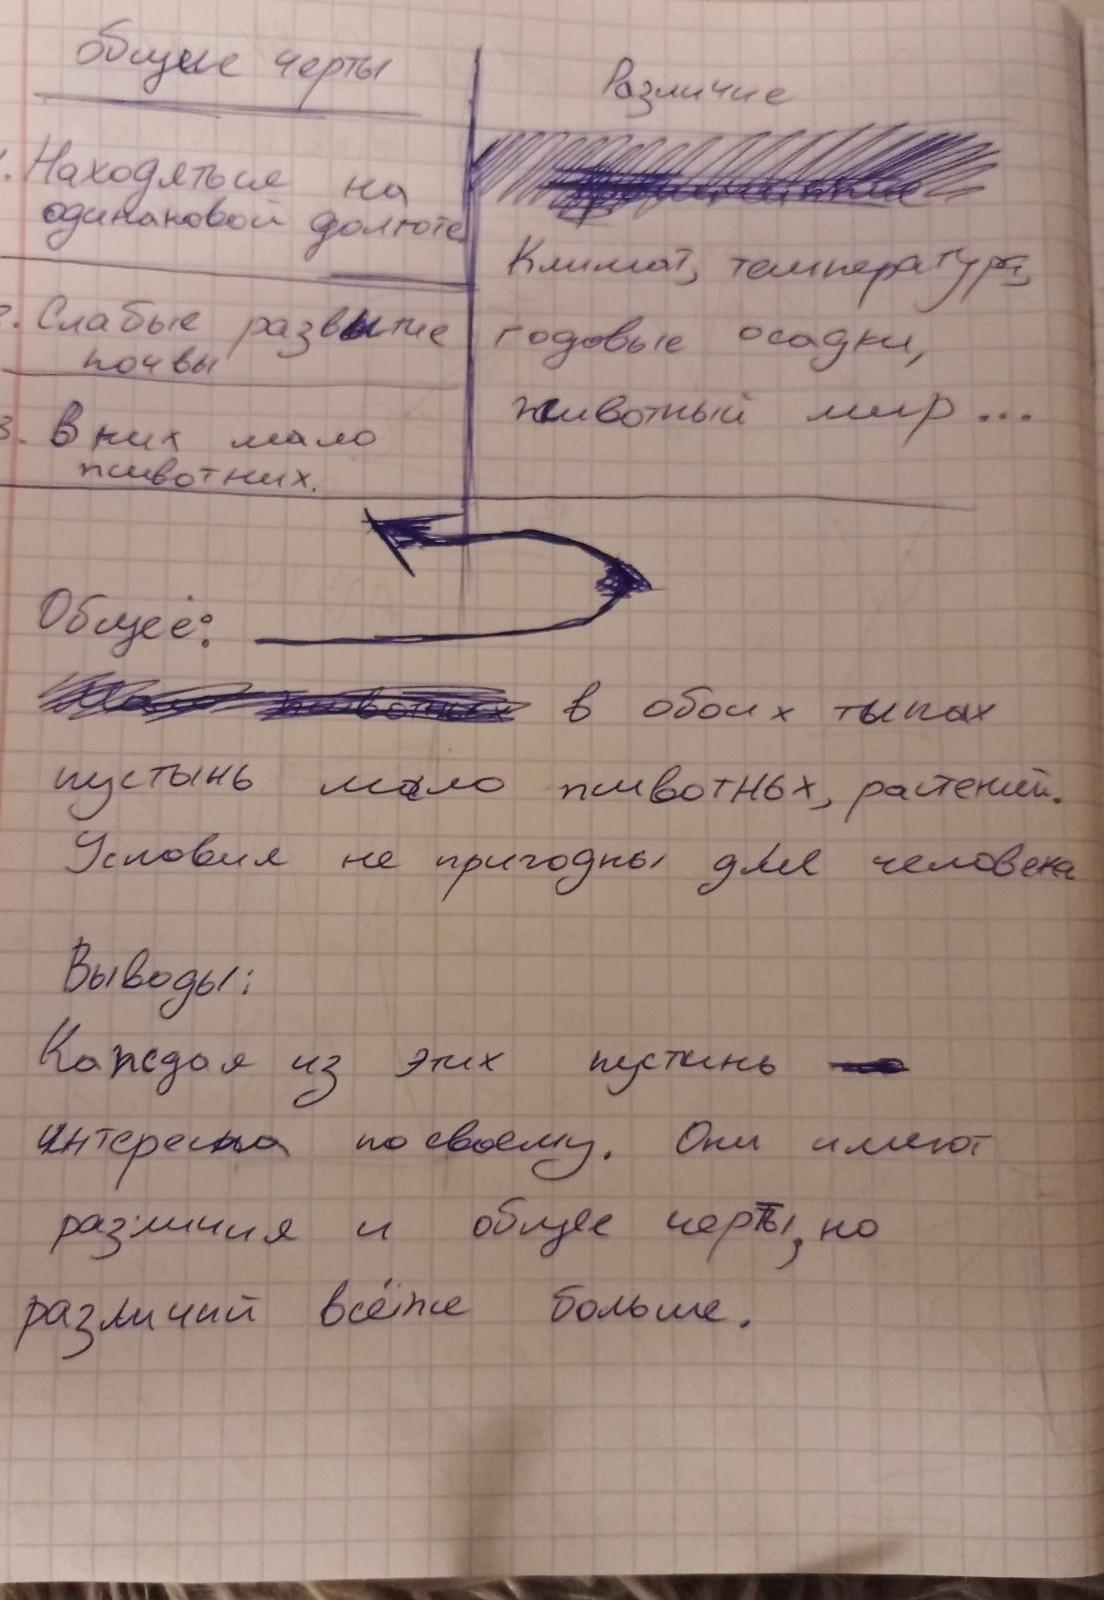 Общие черты
Различие
1. Находяться на
одинаковой долготе
2. Слабые развытие
почвы
3. В них мало
животних.
Климат, температура,
годовые осадки,
животный мир...
Общее:
в обоих тыпах
пустынь мало животных, растений.
Условия не пригодны для человека
Выводы:
Каждая из этих пустинь
интересна по своему. Они имеют
различия и общее черты, но
различий всёже больше.